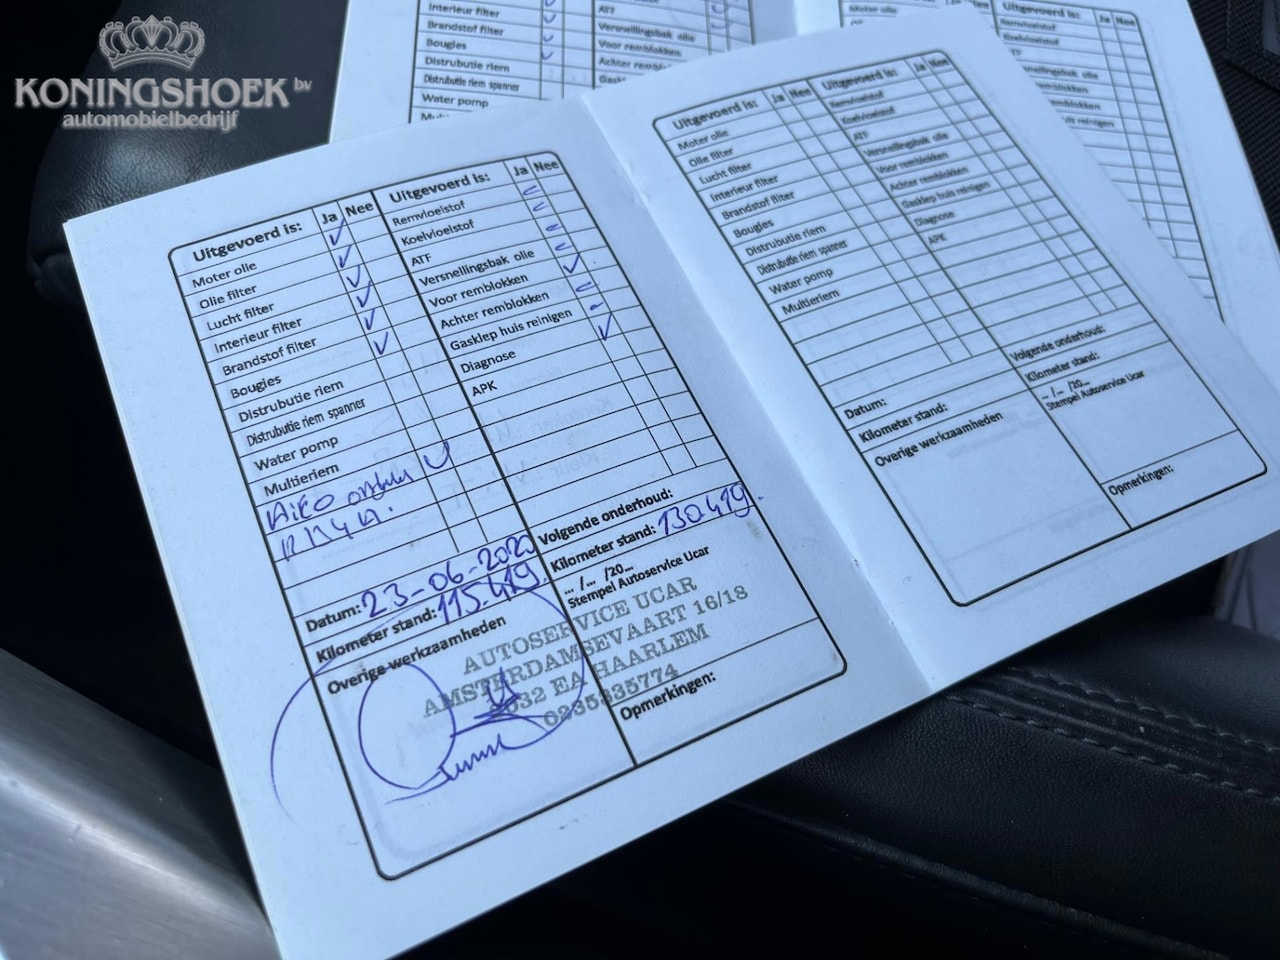 KONINGSHOEK bv
automobielbedrijf
Interieur filter
Brandstof filter
Bougies
Distrubutie riem
Distrubutie riem spanner
Water pomp
ATF
Versnellingsbak olie
Voor remblokken
Achter remblokken
Moter olie
Ja Nee
Remvloeistof
Koelvloeistof
Uitgevoerd is: Ja Nee
Moter olie
Olie filter
Lucht filter
Interieur filter
Brandstof filter
Bougies
Distrubutie riem
Distrubutie riem spanner
Water pomp
Multieriem
Datum: 23-06-2020
Kilometer stand: 115.419.
Overige werkzaamheden
Uitgevoerd is: Ja Nee
Remvloeistof
Koelvloeistof
ATF
Versnellingsbak olie
Voor remblokken
Achter remblokken
Gasklep huis reinigen
Diagnose
APK
Volgende onderhoud:
Kilometer stand: 130.419.
.. /... /20...
Stempel Autoservice Ucar
AUTOSERVICE UCAR
AMSTERDAMSEVAART 16/18
2032 EA HAARLEM
0235335774
Opmerkingen:
Uitgevoerd is: Ja Nee
Moter olie
Olie filter
Lucht filter
Interieur filter
Brandstof filter
Bougies
Distrubutie riem
Distrubutie riem spanner
Water pomp
Multieriem
Datum:
Kilometer stand:
Overige werkzaamheden
Uitgevoerd is: Ja Nee
Remvloeistof
Koelvloeistof
ATF
Versnellingsbak olie
Voor remblokken
Achter remblokken
Gasklep huis reinigen
Diagnose
APK
Volgende onderhoud:
Kilometer stand:
.. /... /20...
Stempel Autoservice Ucar
Opmerkingen: